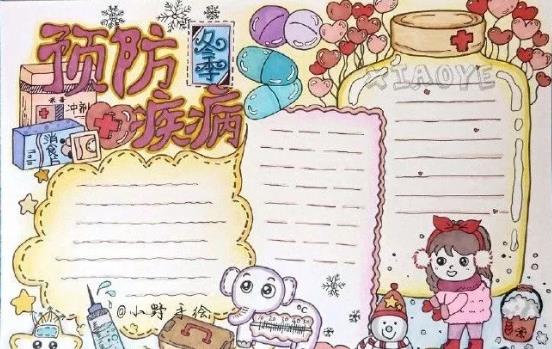 预防
冬季
疾病
XIAOYE
冲剂
消食片
°C
@小野手绘